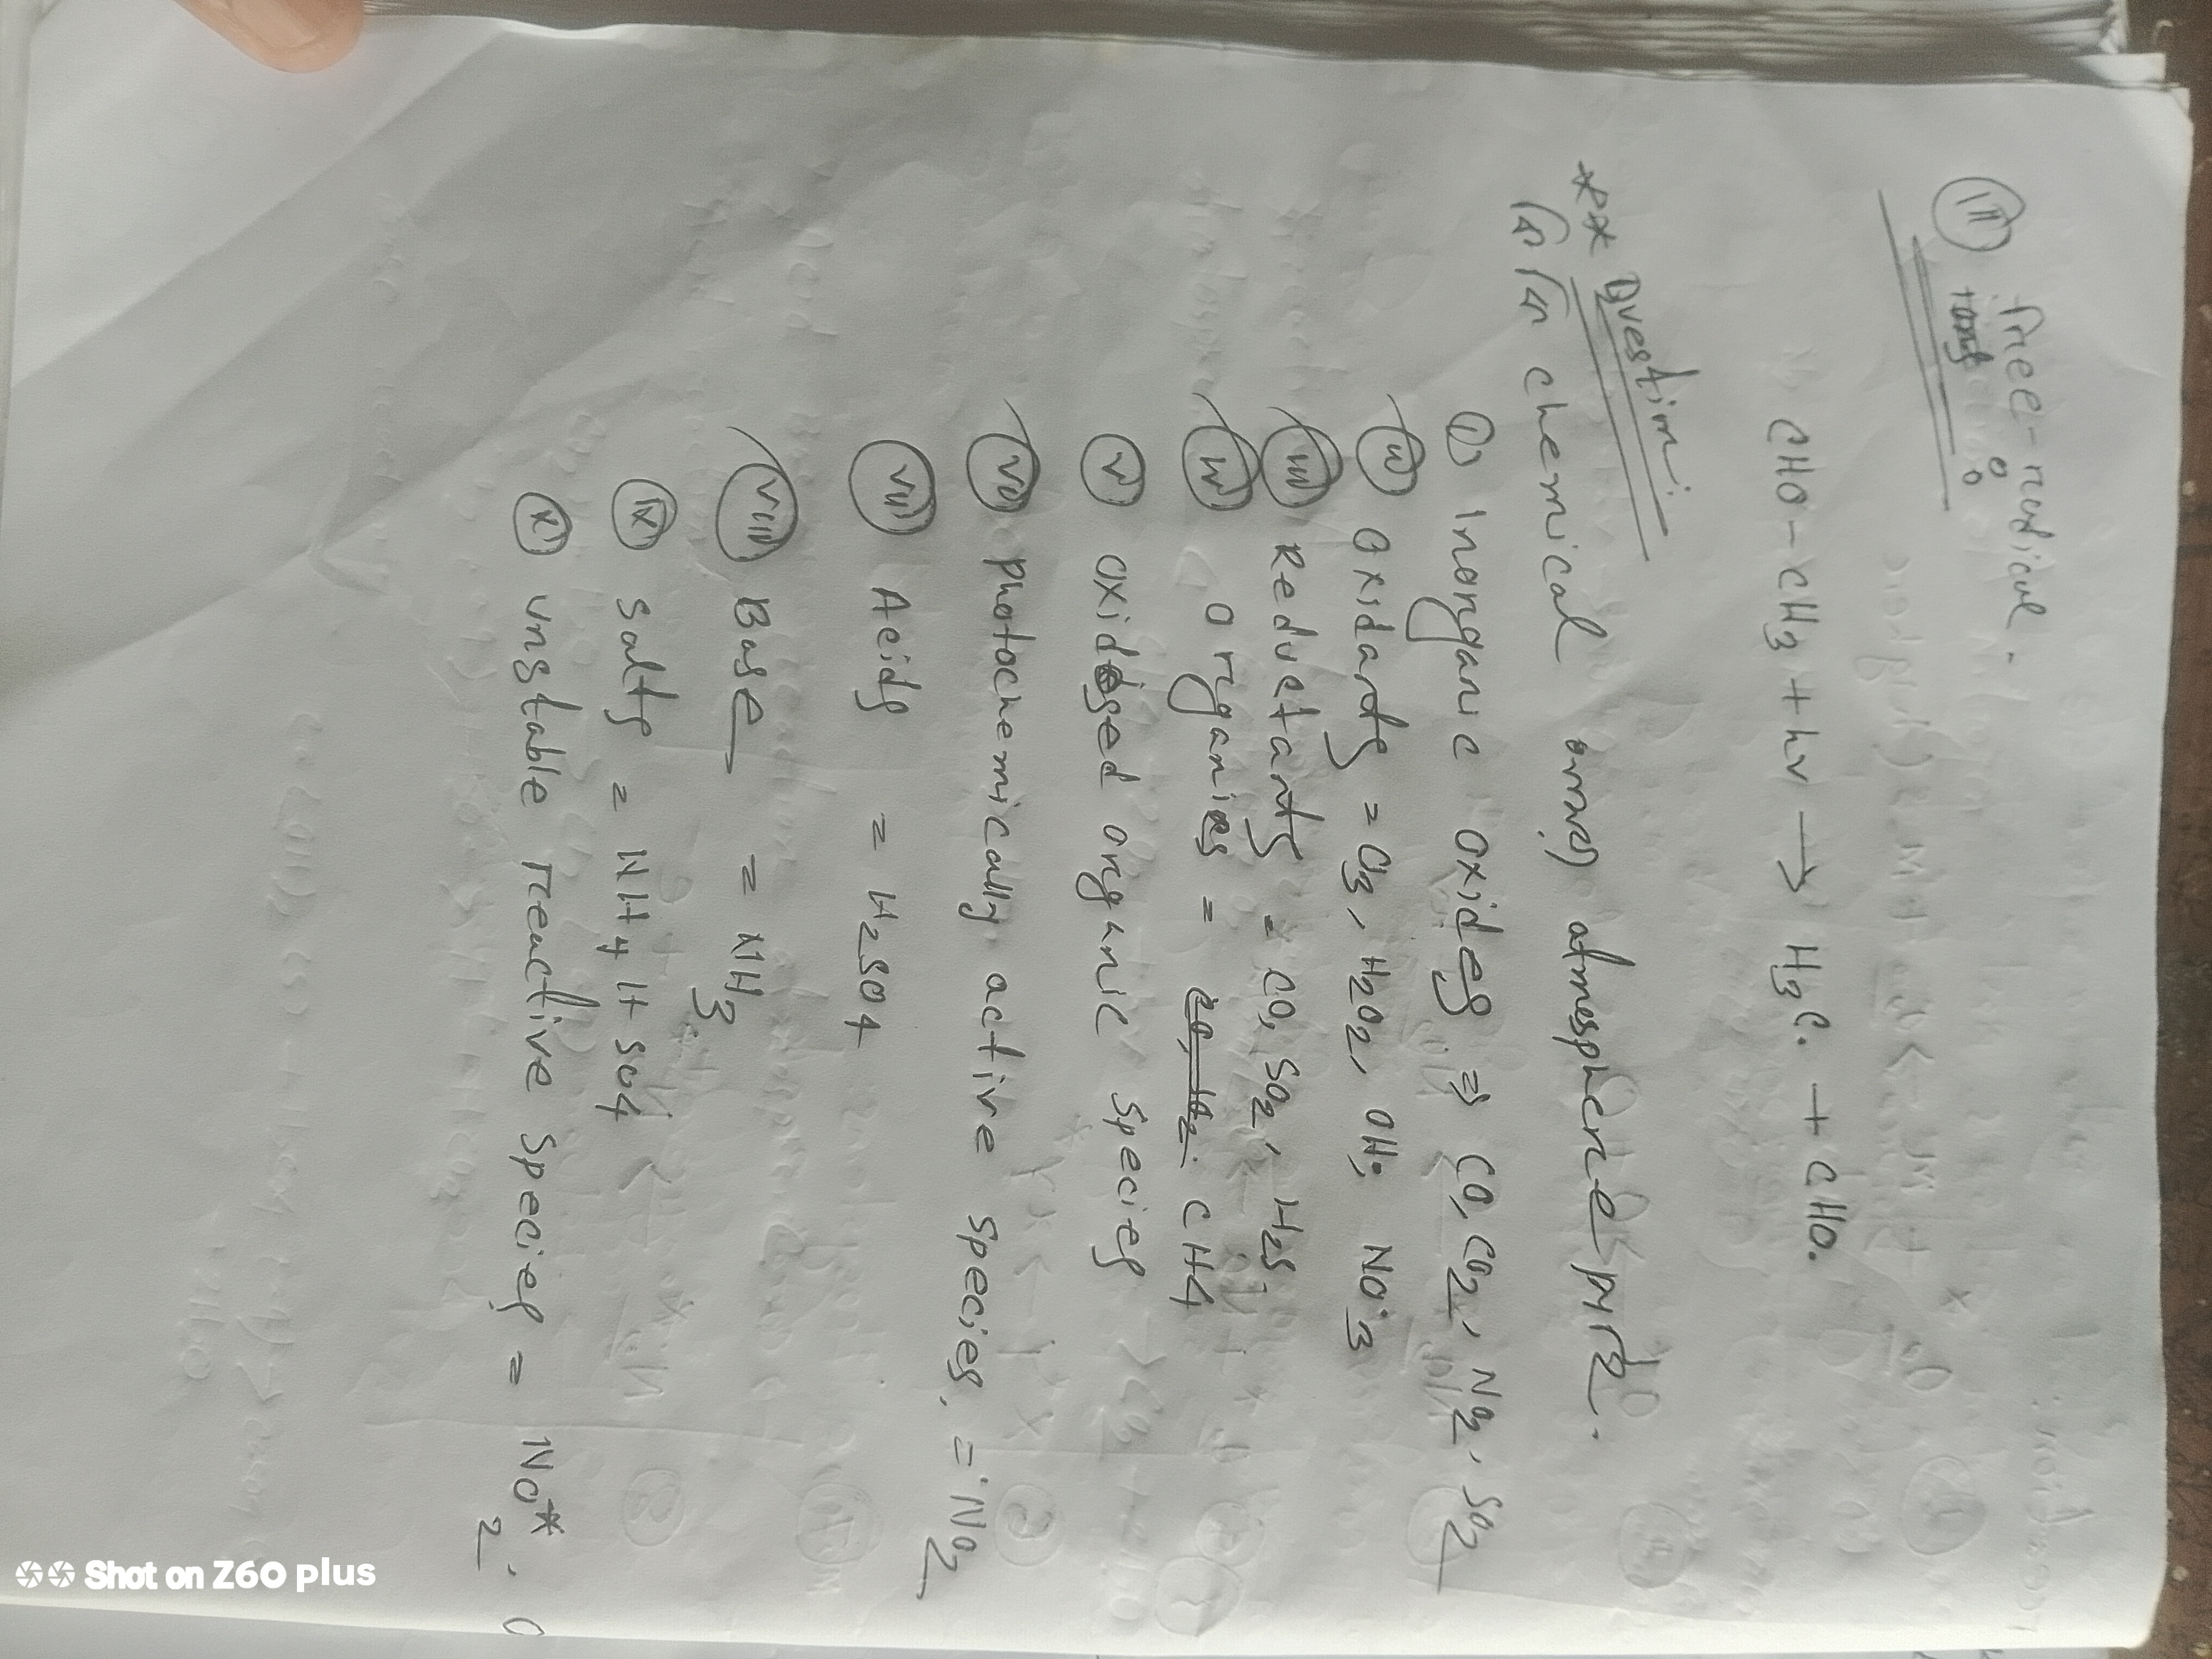 III free-radical.
CHO-CH3 + hv → H3C. + CHO.
*** Question:
chemical atmosphere
I) Inorganic oxides ⇒ CO, CO2, NO2, SO2
II Oxidants = O3, H2O2, OH; NO3
III Reductants = CO, SO2, H2S.
IV Organics = CH4
V Oxidesed organic species
VI photochemically active species, = NO2
VII Acids = H2SO4
VIII Base = NH3
IX Salts = NH4HSO4
X Unstable reactive species = NO*2.
Shot on Z60 plus